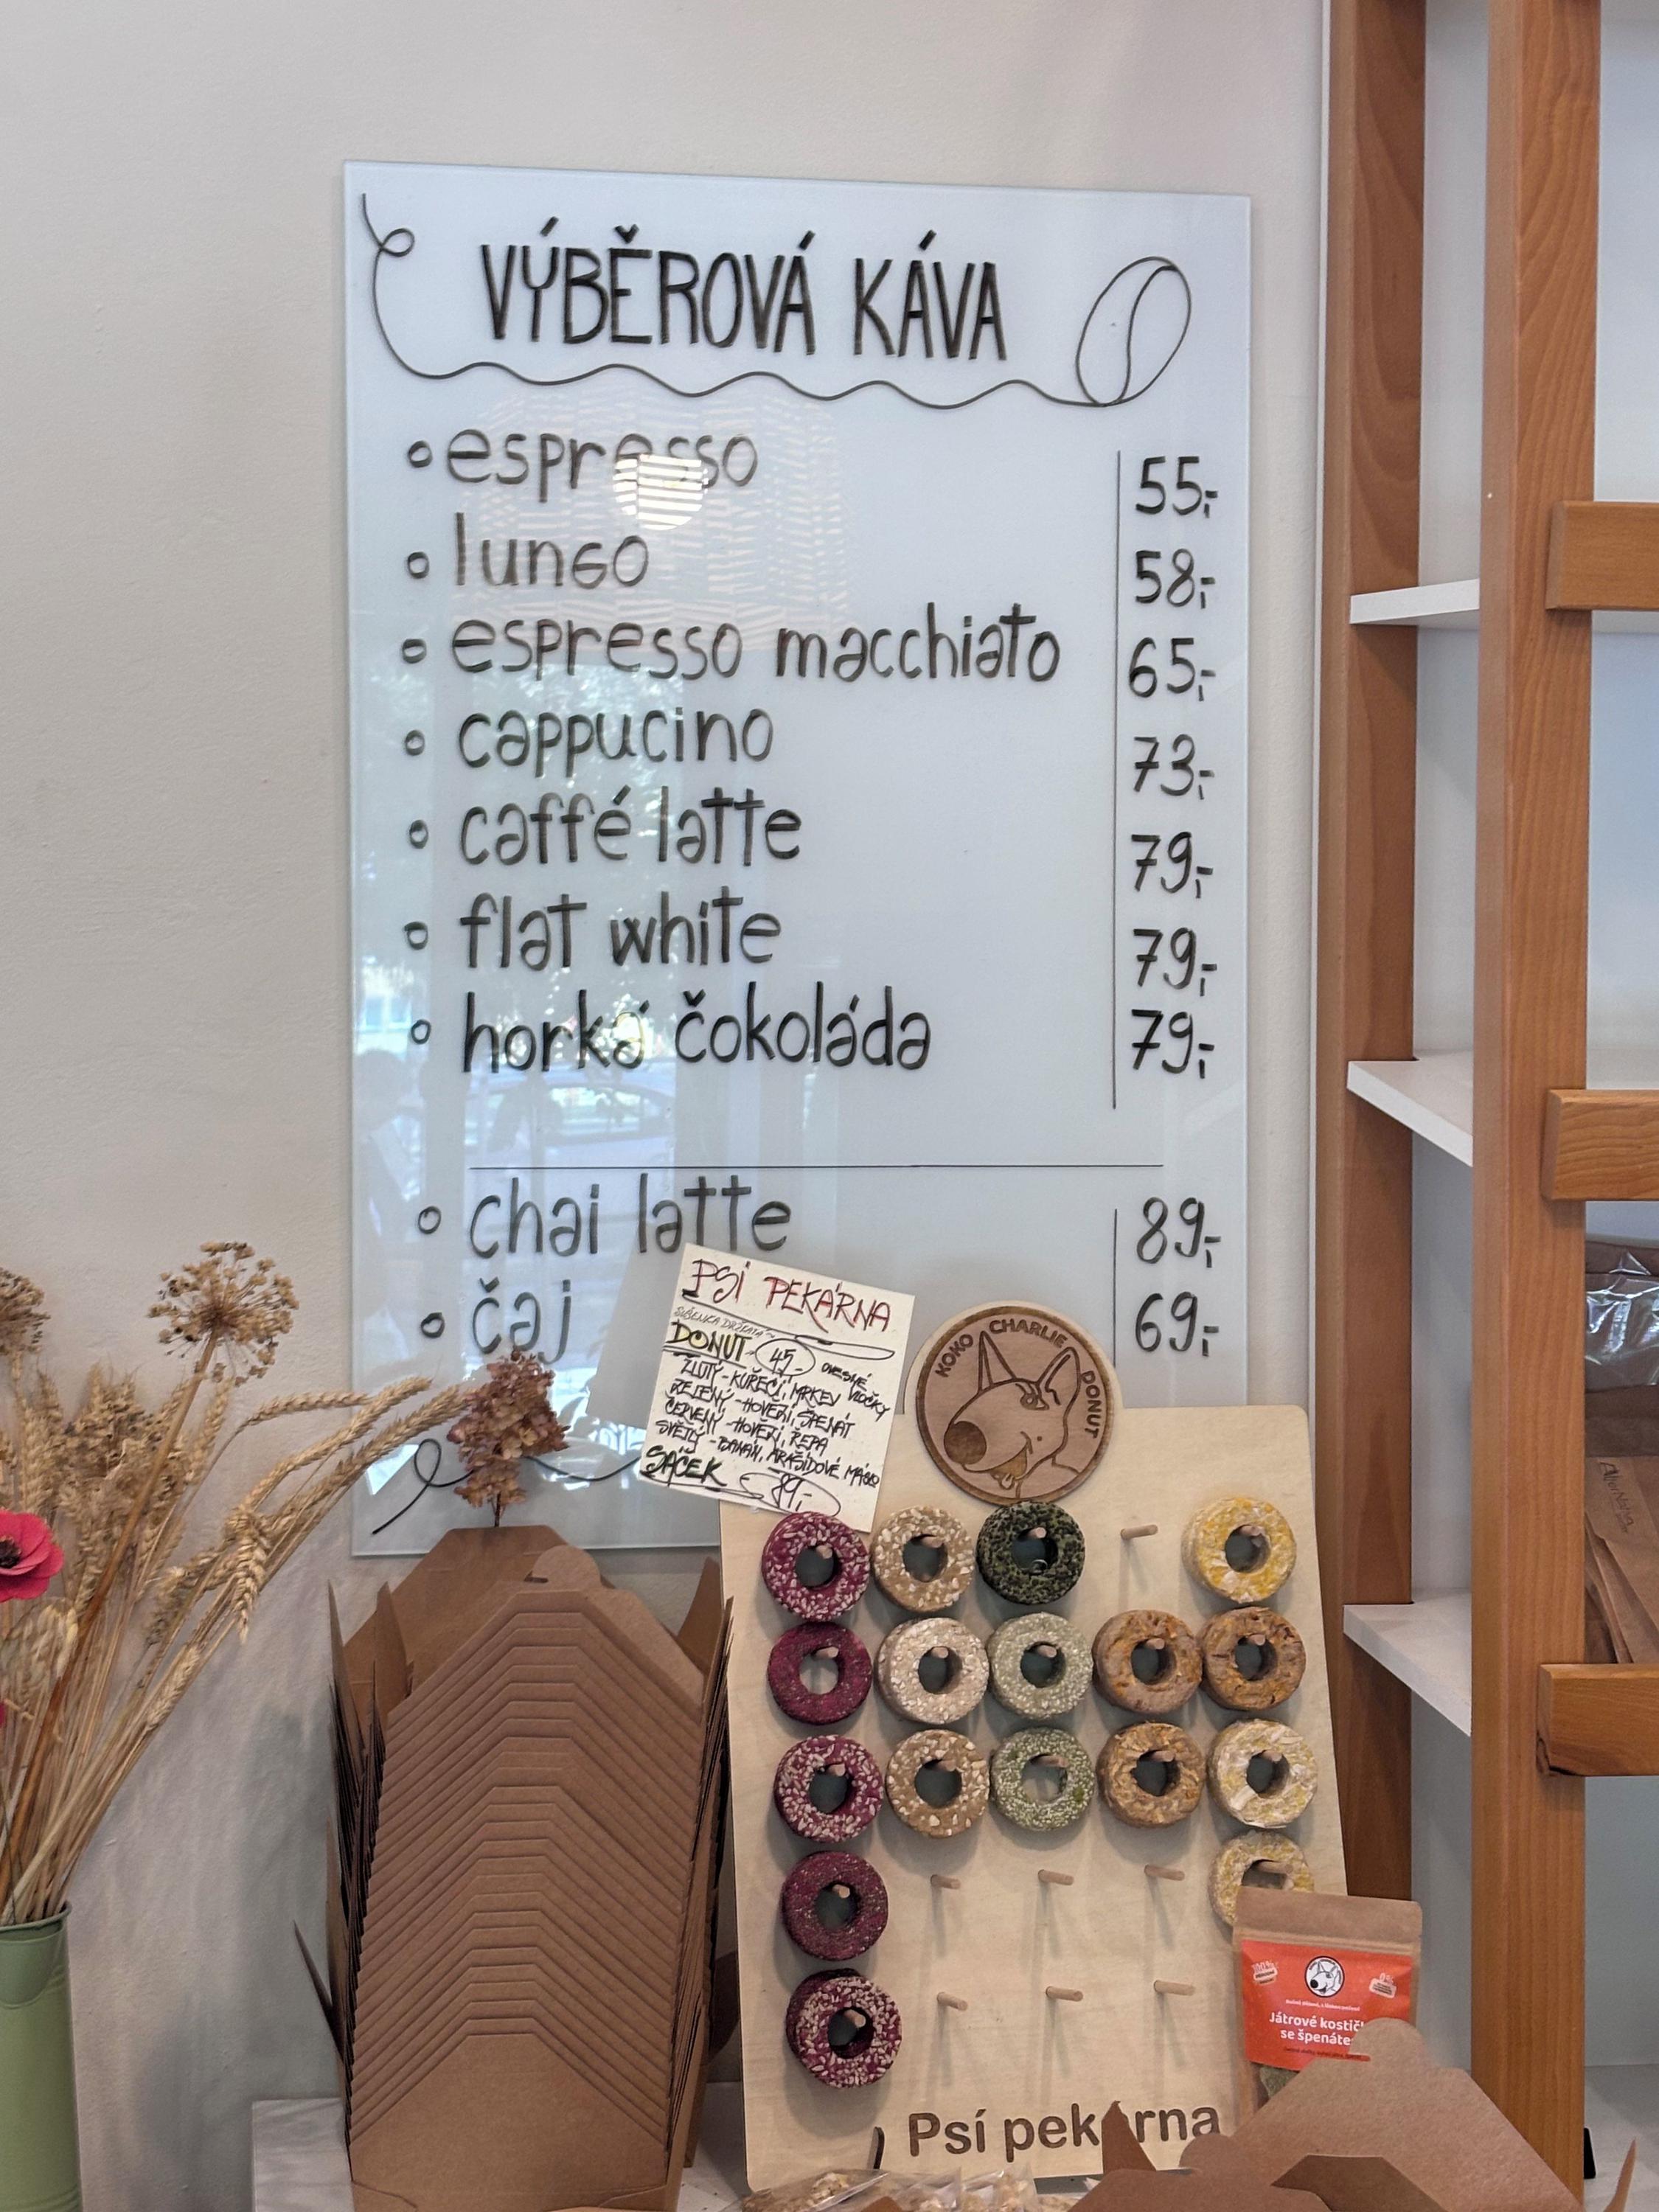 VÝBĚROVÁ KÁVA
espresso 55,-
lungo 58,-
espresso macchiato 65,-
cappucino 73,-
caffé latte 79,-
flat white 79,-
horká čokoláda 79,-
chai latte 89,-
čaj 69,-
PSÍ PEKÁRNA
DONUT 45,- OVESNÉ VLOČKY
ŽLUTÝ - KUŘECÍ, MRKEV
ZELENÝ - HOVĚZÍ, ŠPENÁT
ČERVENÝ - HOVĚZÍ, ŘEPA
SVĚTLÝ - BANÁN, ARAŠÍDOVÉ MÁSLO
SÁČEK 89,-
KOKO CHARLIE DONUT
100%
0%
Játrové kostičk
se špenáte
Psí pekárna